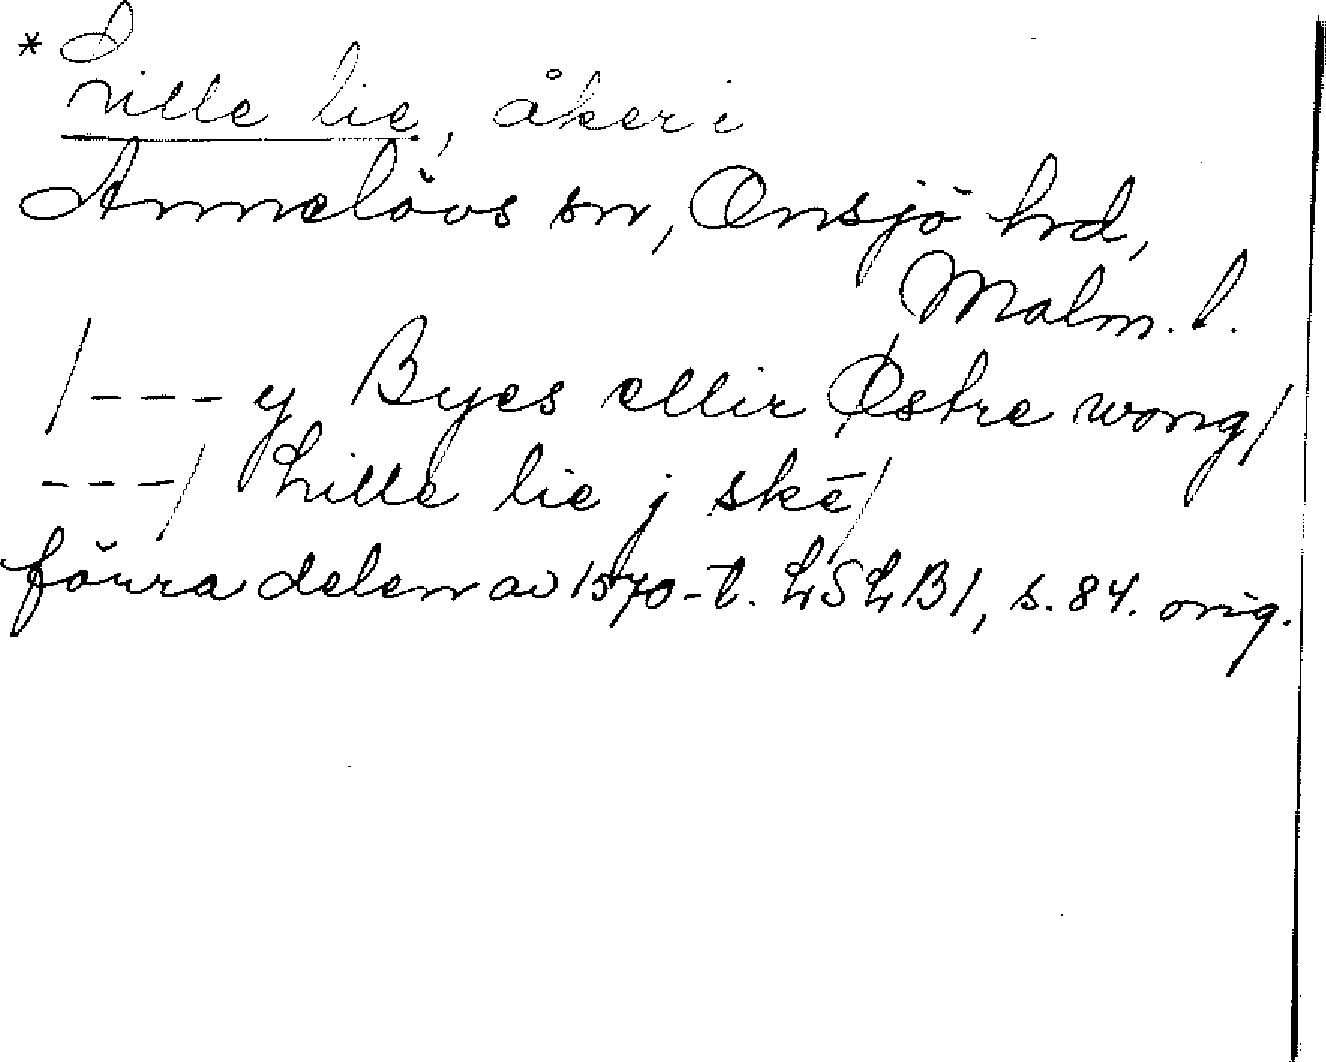 * Lille lie, åker i
Annelövs sn, Onsjö hrd,
Malm. l.
/---y Byes ellir Østre wong/
---/ Lille lie j skē/
förra delen av 1570-t. LSLB1, s. 84. orig.